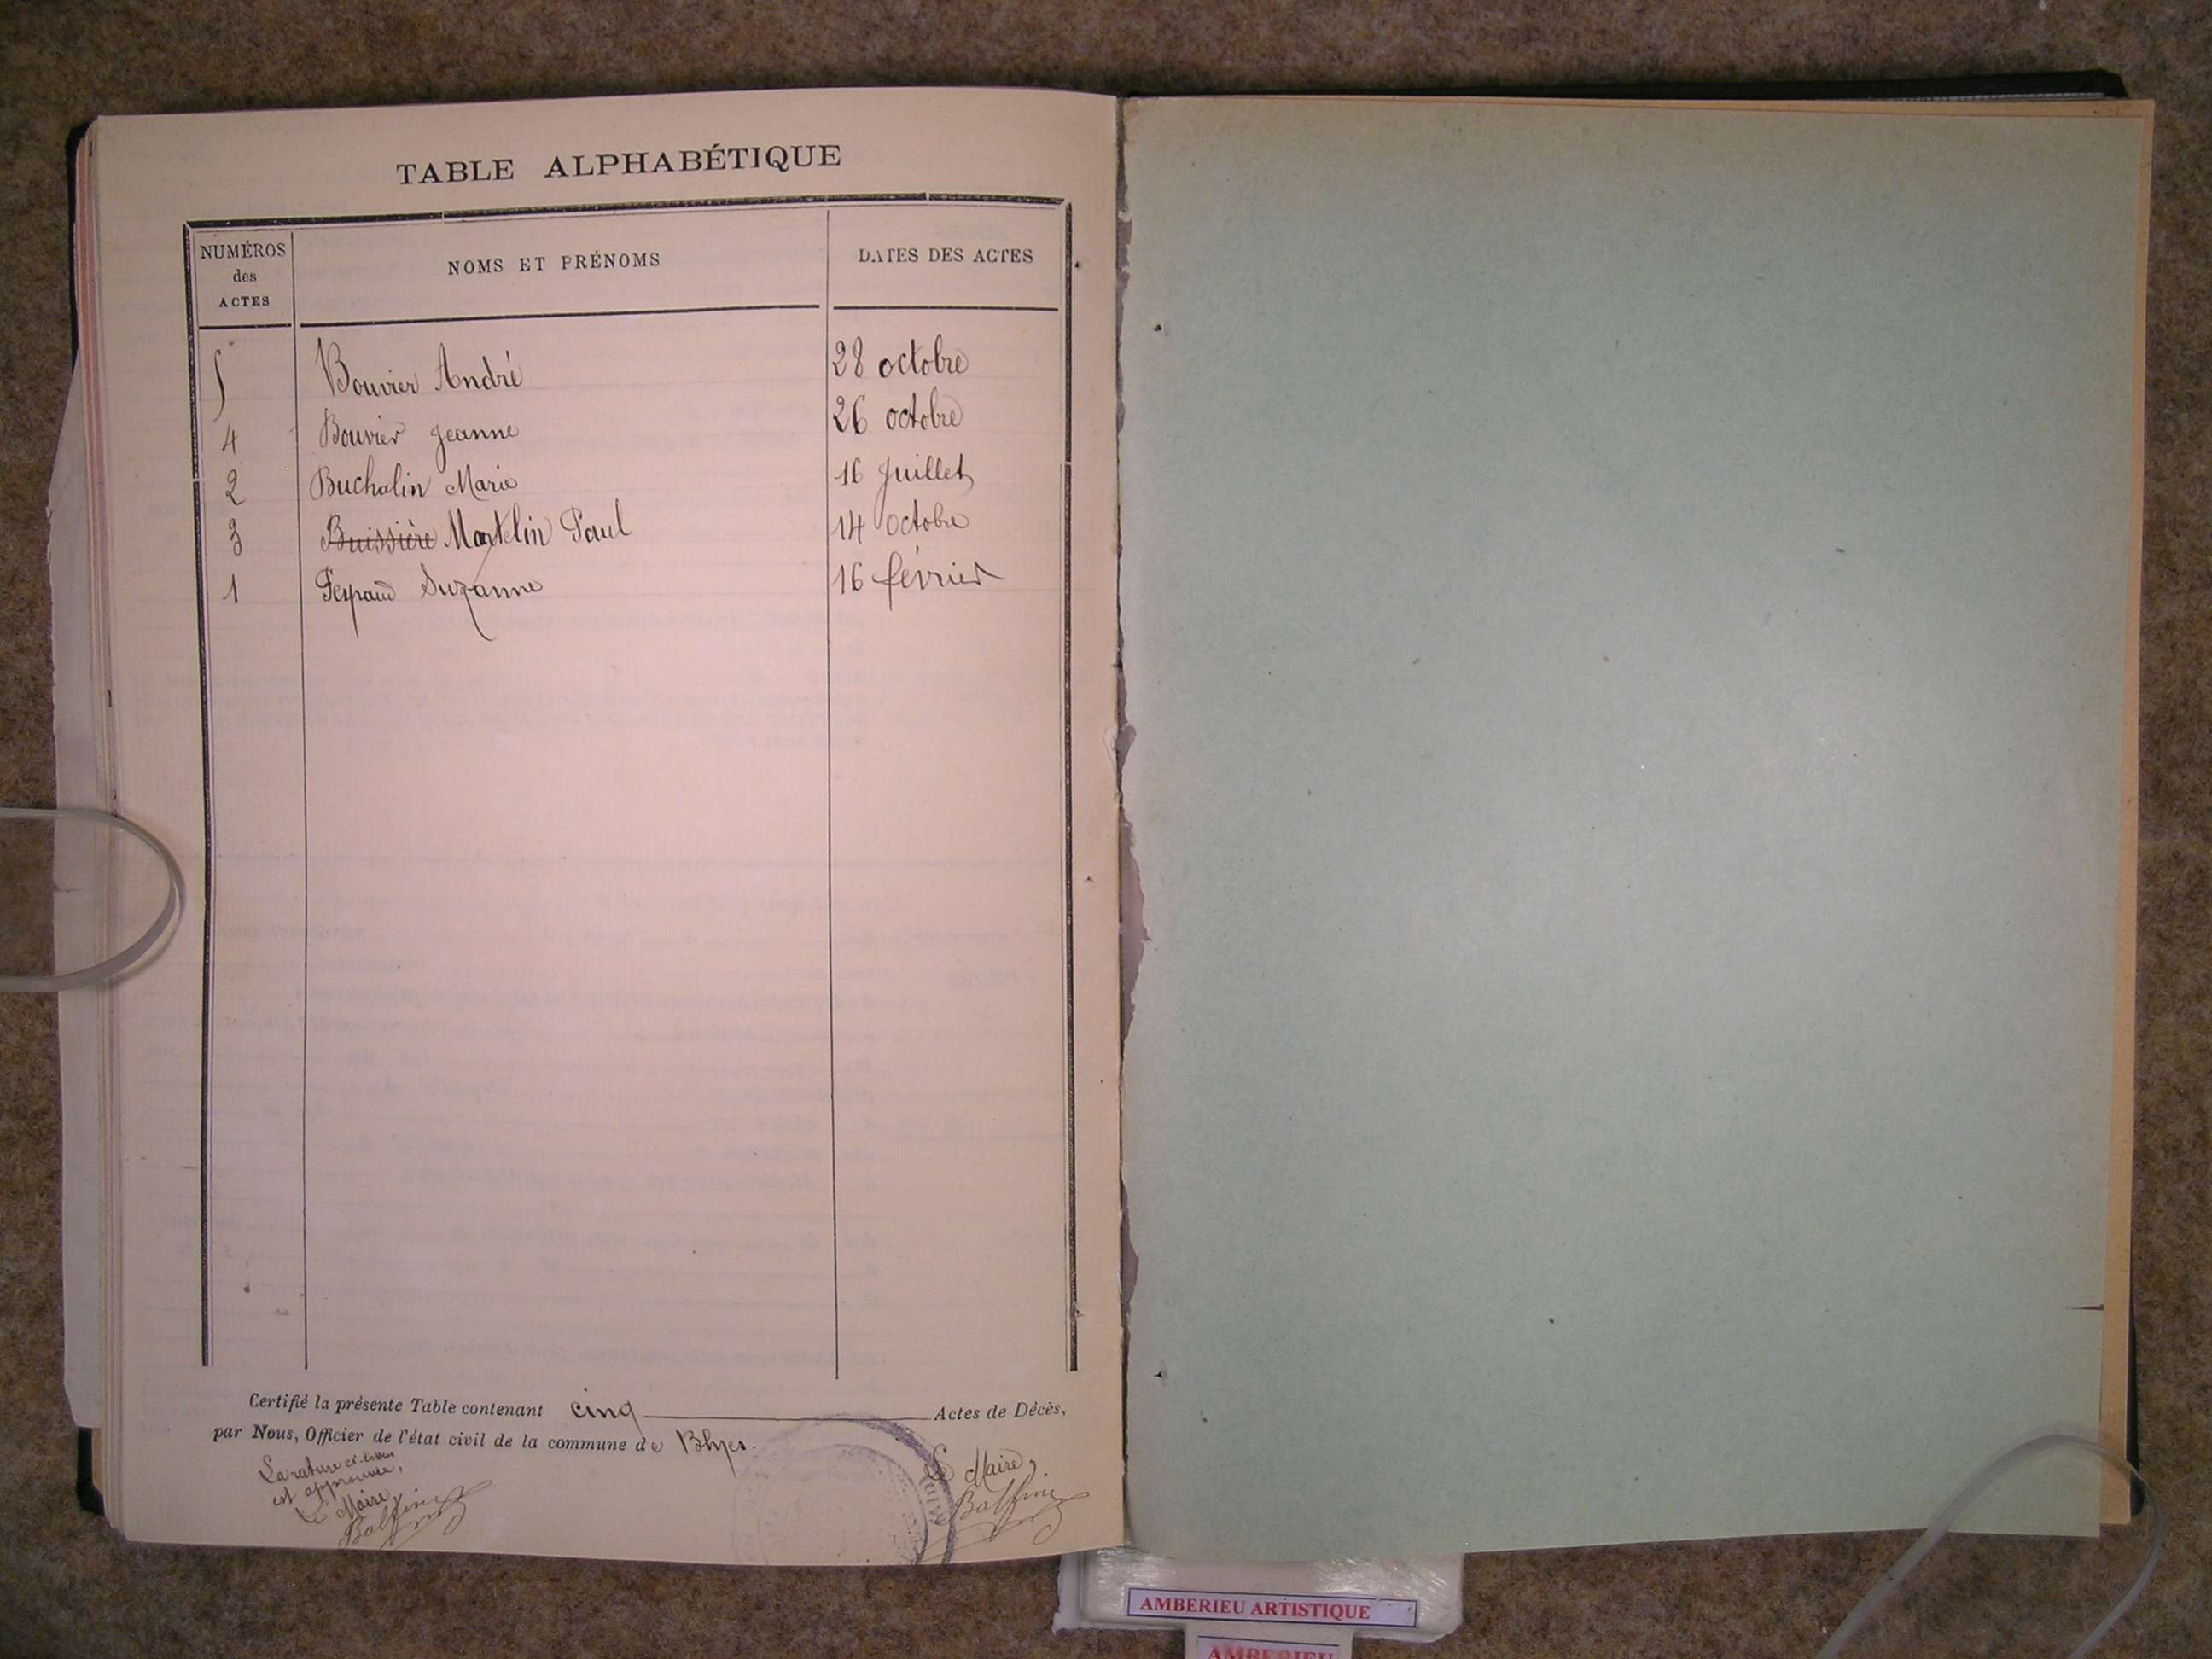 TABLE ALPHABÉTIQUE
NUMÉROS des ACTES NOMS ET PRÉNOMS DATES DES ACTES
5 Bouvier André 28 octobre
4 Bouvier Jeanne 26 octobre
2 Buchalin Marie 16 Juillet
3 Buissière Martelin Paul 14 octobre
1 Suzanne 16 février
Certifié la présente Table contenant cinq Actes de Décès,
par Nous, Officier de l'état civil de la commune de Blyes.
La rature ci-dessus
est approuvée,
Le Maire,
Le Maire,
AMBERIEU ARTISTIQUE
AMBERIEU